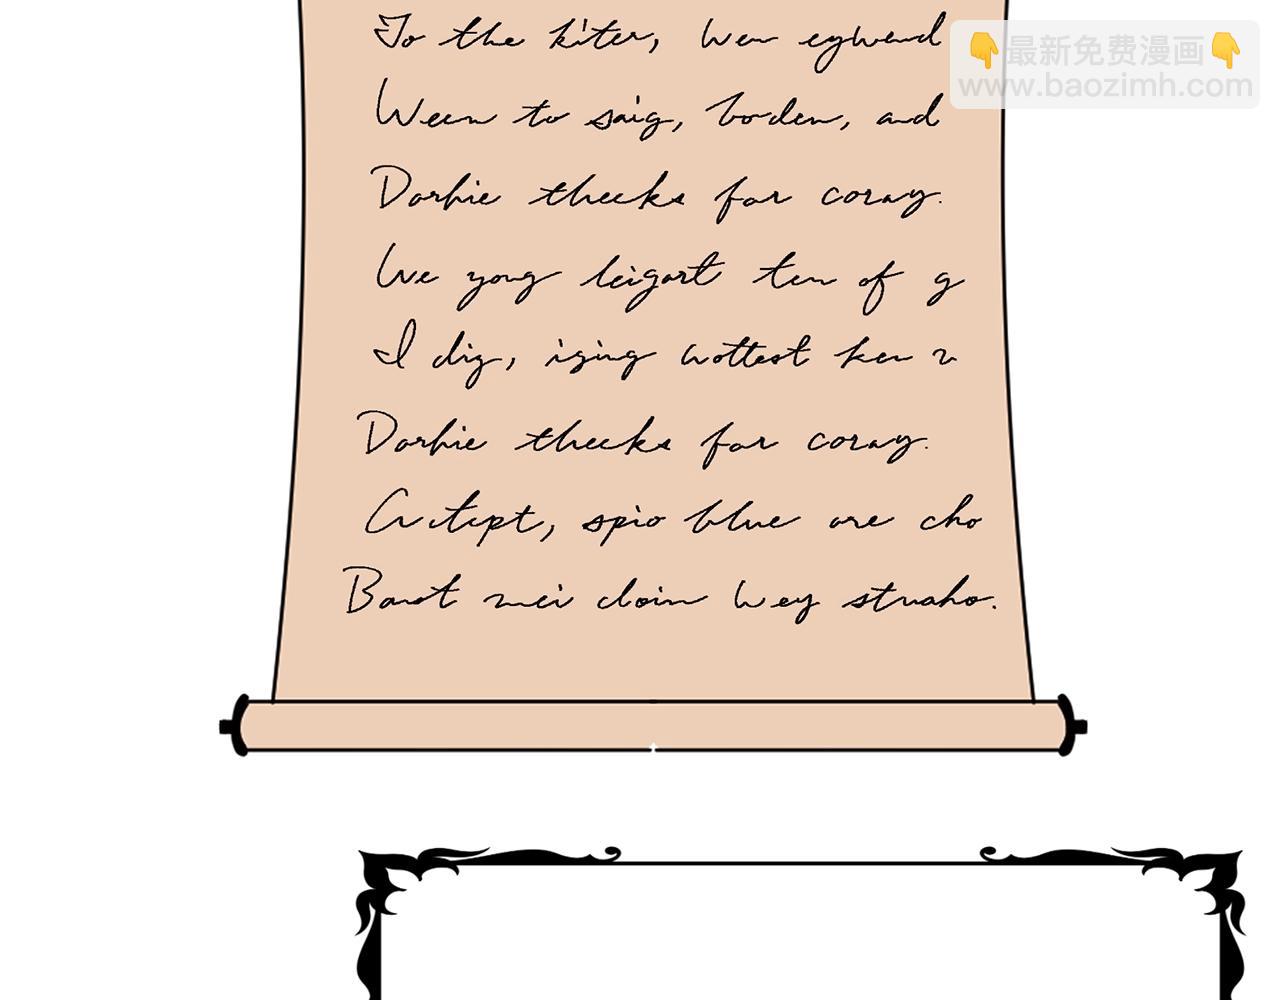 To the kiter, Wen eywend
最新免费漫画
www.baozimh.com
Ween to saig, boden, and
Dorhie thecks for coray.
We yong leigort ten of g
I dig, ising wottest ken
Dorhie thecks for coray.
spio blue are cho
mei cloin wey struaho.